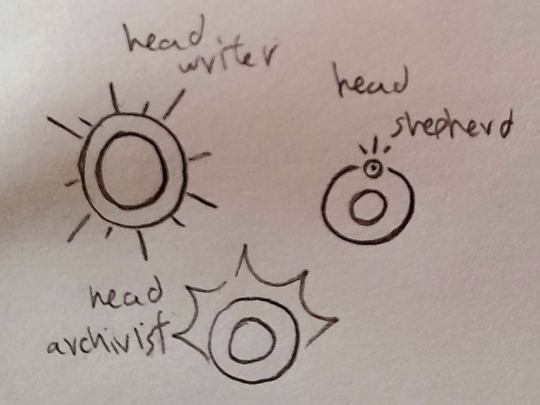 head
writer
head
shepherd
head
archivist